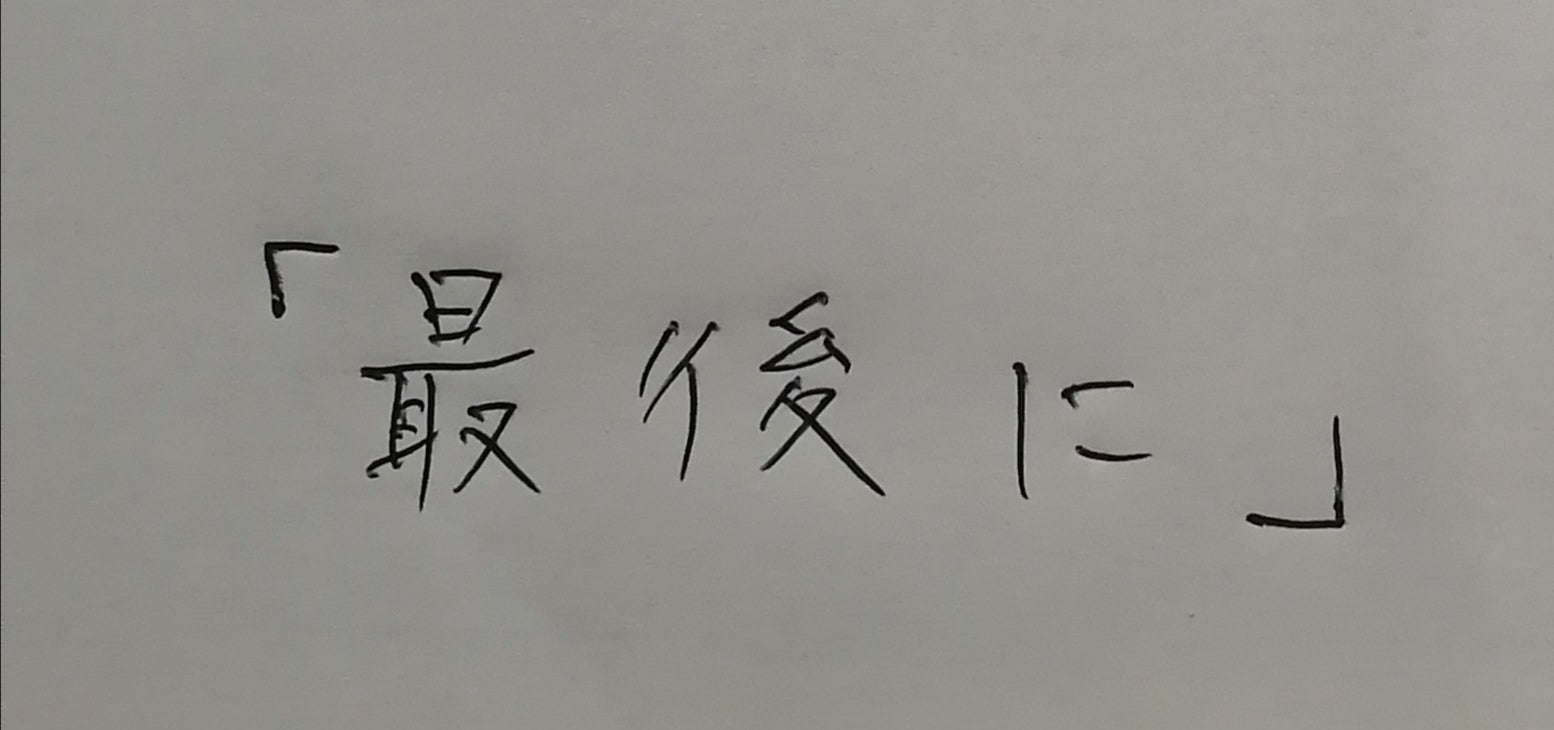 「最後に」